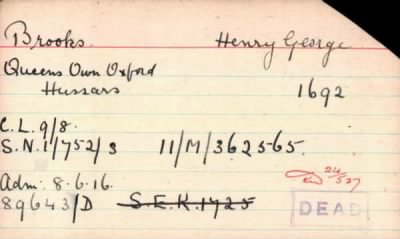 Brooks. Henry George
Queens Own Oxford
Hussars 1692
C.L. 9/8.
S.N. 1/752/3 11/M/362565.
Adm: 8.6.16.
24/527
89643/D S.E.K.1725
DEAD